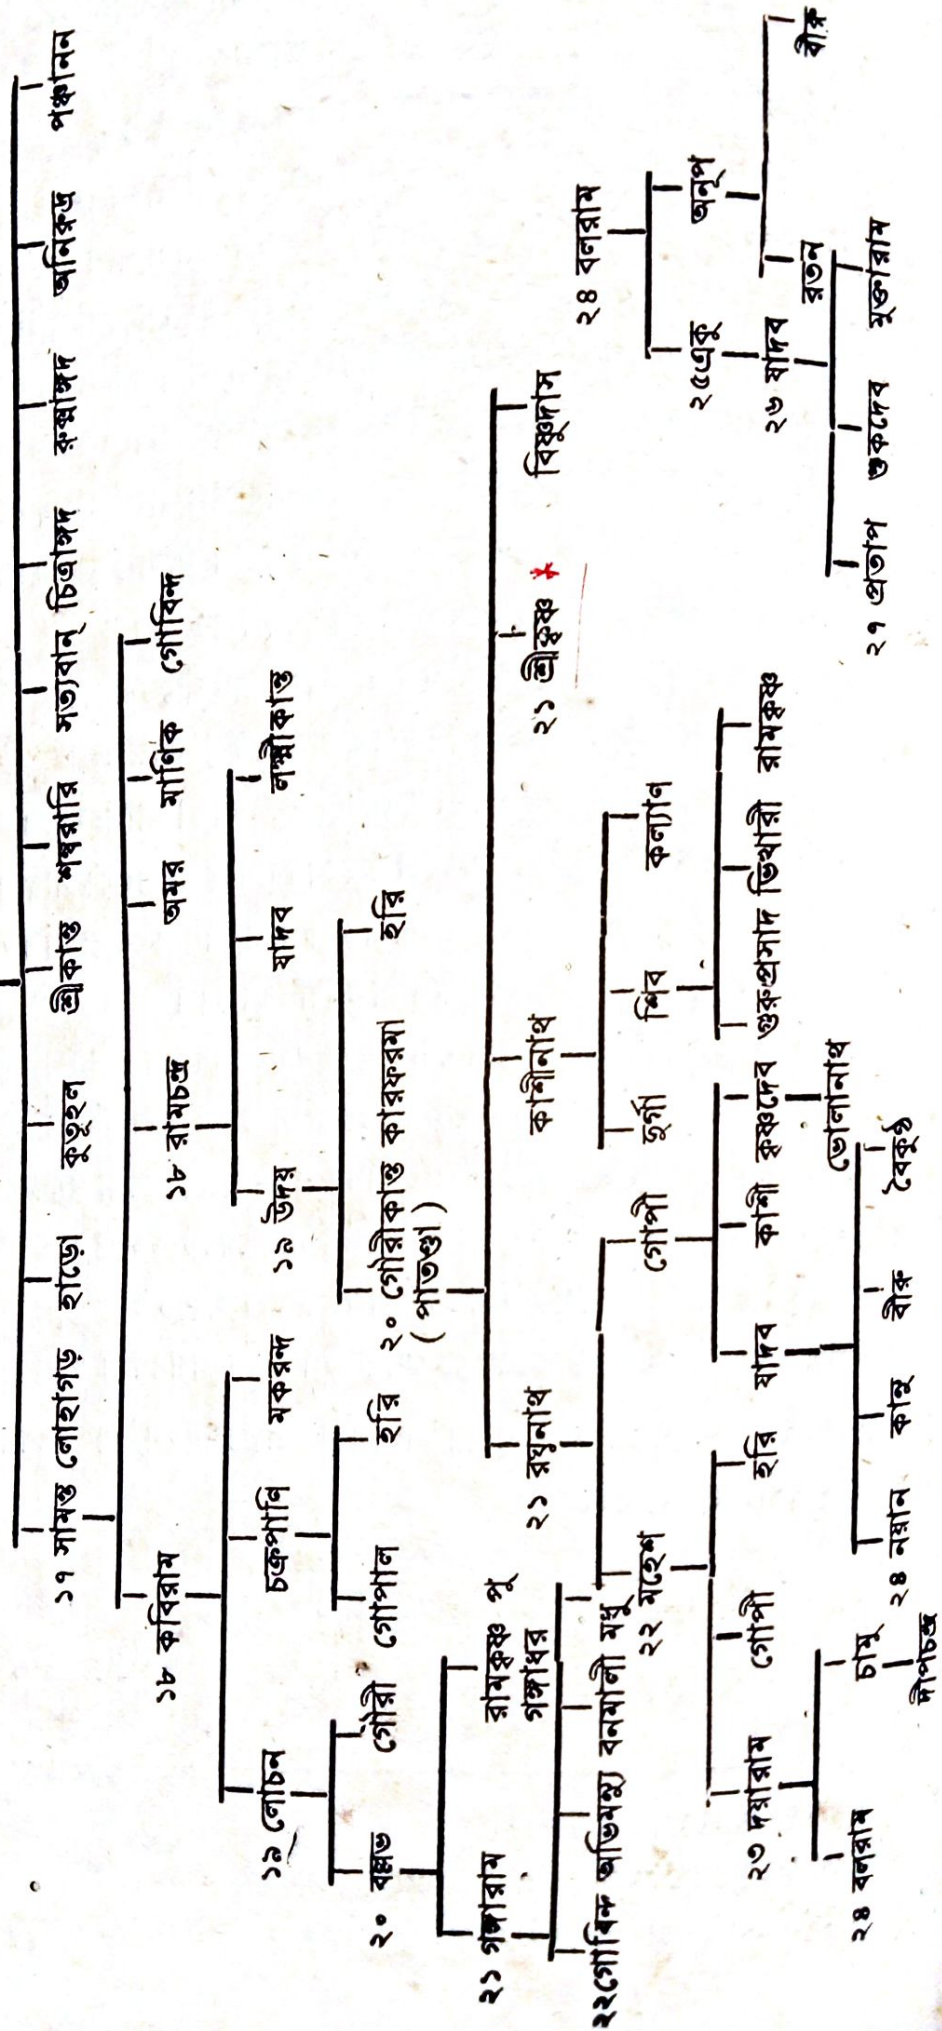 ১৭ সামন্ত লোহাগড় হাড়ো কুতূহল শ্রীকান্ত শম্বরারি সত্যবান্ চিত্রাঙ্গদ রুক্মাঙ্গদ অনিরুদ্ধ পঞ্চানন
১৮ কবিরাম ১৮ রামচন্দ্র অমর মাণিক গোবিন্দ
১৯ লোচন চক্রপাণি মকরন্দ ১৯ উদয় যাদব লক্ষ্মীকান্ত
২০ বল্লভ গৌরী গোপাল হরি ২০ গৌরীকান্ত কারফরমা হরি
( পাতণ্ডা )
২১ গঙ্গারাম রামকৃষ্ণ পু গঙ্গাধর ২১ রঘুনাথ কাশীনাথ ২১ শ্রীকৃষ্ণ * বিষ্ণুদাস
২২ গোবিন্দ অভিমন্যু বনমালী মধু
২২ মহেশ গোপী দুর্গা শিব কল্যাণ
২৩ দয়ারাম গোপী হরি যাদব কাশী কৃষ্ণদেব গুরুপ্রসাদ ভিখারী রামকৃষ্ণ
ভোলানাথ
২৪ বলরাম চামু ২৪ নয়ান কানু বীরু বৈকুণ্ঠ
দীপচন্দ্র
২৪ বলরাম
২৫ একু অনূপ
২৬ যাদব রতন বীরু
২৭ প্রতাপ শুকদেব মুক্তারাম